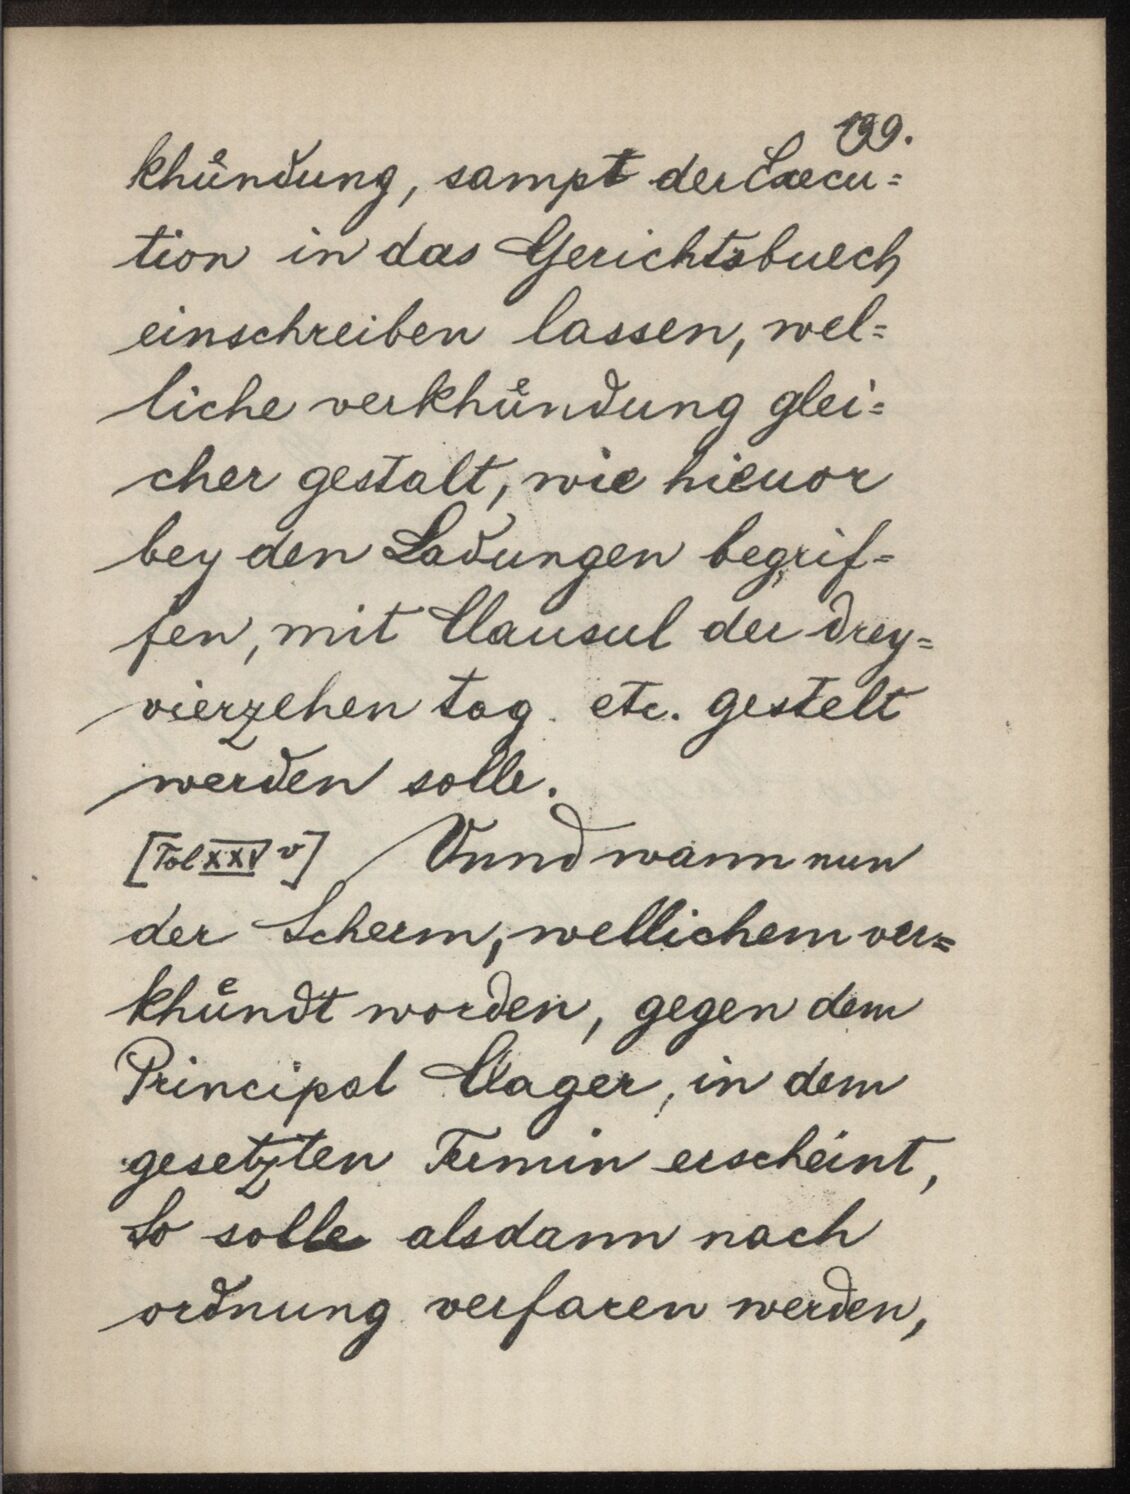 199.
khůndung, sampt der Execu=
tion in das Gerichtsbuech
einschreiben lassen, wel=
liche verkhůndung glei=
cher gestalt, wie hieuor
bey den Ladungen begrif=
fen, mit Clausul der drey=
vierzehen tag etc. gestelt
werden solle.
[Fol XXV v] Vnnd wann nun
der Scherm, wellichem ver=
khůndt worden, gegen dem
Principal Clager, in dem
gesetzten Termin erscheint,
So solle alsdann nach
ordnung verfaren werden,